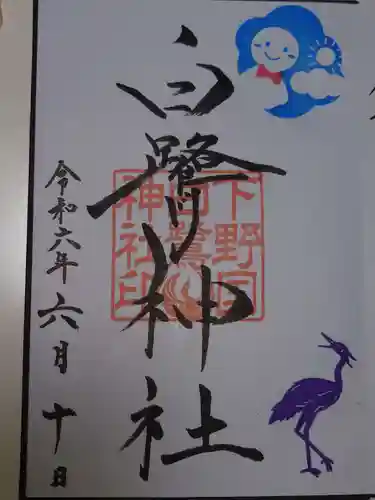 白鷺神社
下野国
白鷺
神社印
令和六年六月十日